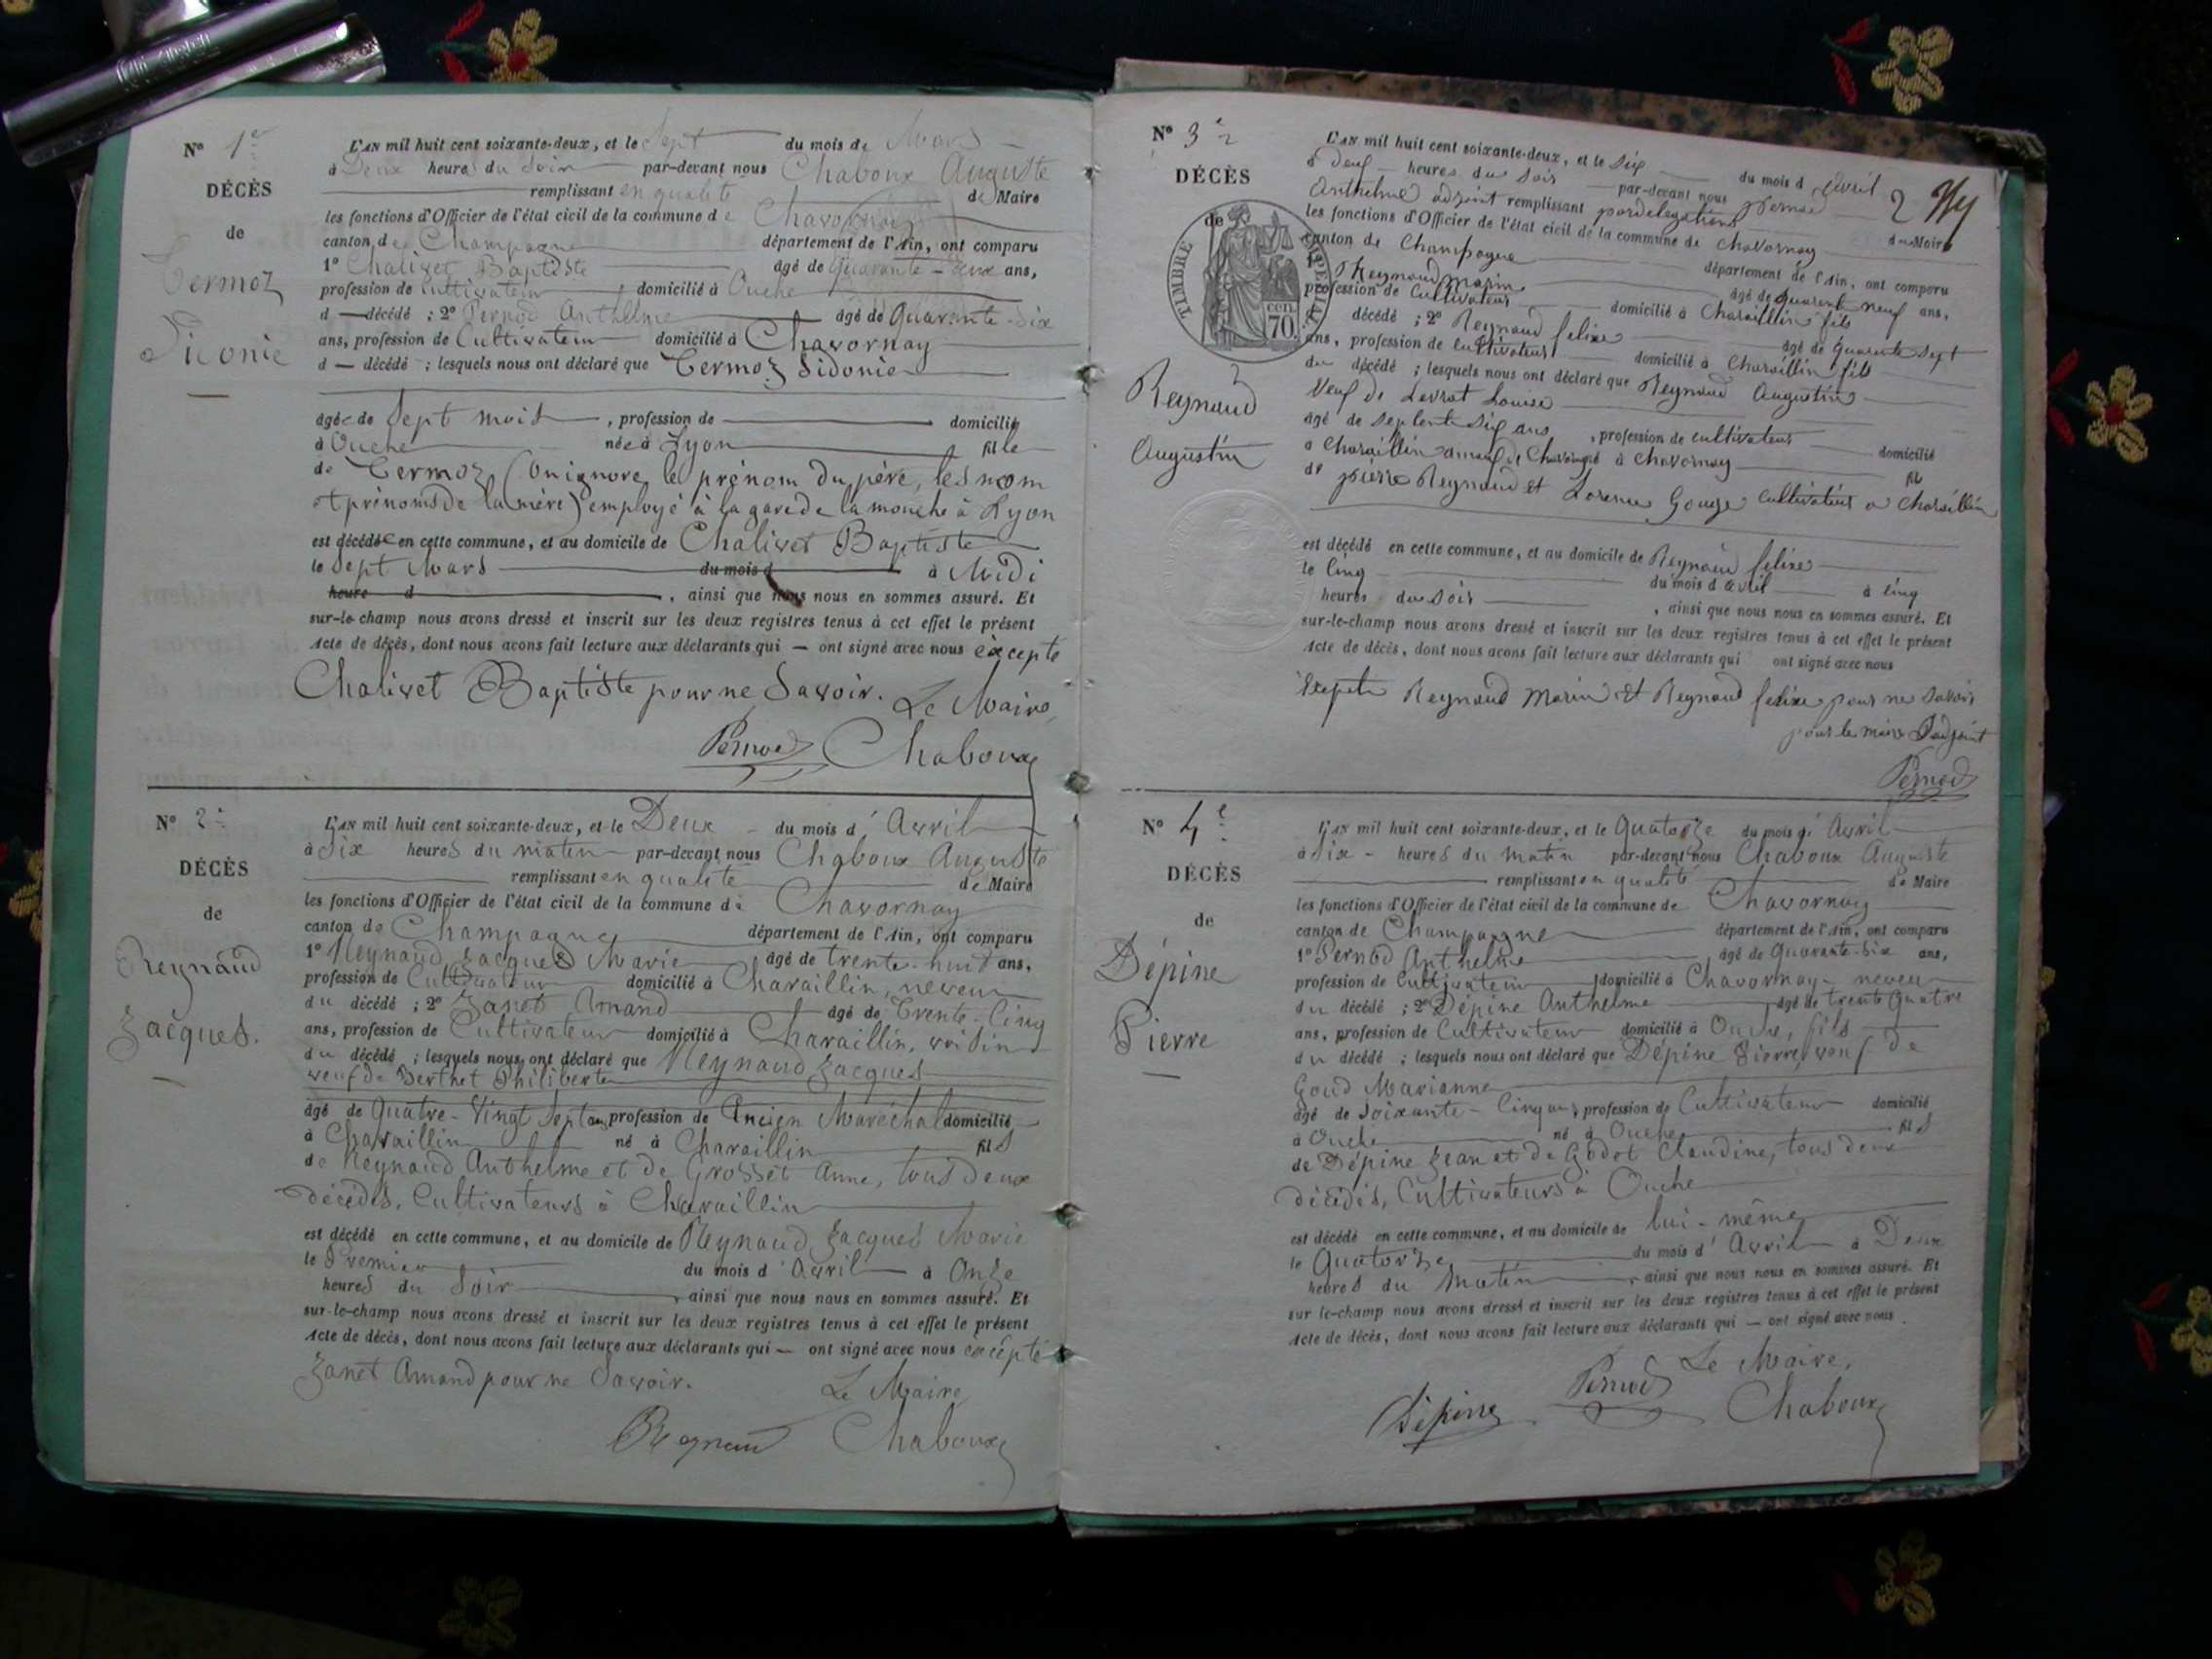 N° 1er
DÉCÈS
de
Termoz
Sidonie
L'AN mil huit cent soixante-deux, et le Sept du mois de Mars
à Deux heures du Soir par-devant nous Chaboux Auguste
remplissant en qualité de Maire
les fonctions d'Officier de l'état civil de la commune de Chavornay
canton de Champagne département de l'Ain, ont comparu
1° Chalivet Baptiste âgé de Quarante-deux ans,
profession de Cultivateur, domicilié à Ouche
d décédé ; 2° Pernod Anthelme âgé de Quarante-Six
ans, profession de Cultivateur domicilié à Chavornay
d décédé ; lesquels nous ont déclaré que Termoz Sidonie
âgée de Sept mois, profession de domicilié
à Ouche née à Lyon fille
de Termoz (On ignore le prénom du père, les nom
et prénoms de la mère) employé à la gare de la mouche à Lyon
est décédée en cette commune, et au domicile de Chalivet Baptiste
le Sept Mars du mois d à Midi
heure d , ainsi que nous nous en sommes assuré. Et
sur-le-champ nous avons dressé et inscrit sur les deux registres tenus à cet effet le présent
Acte de décès, dont nous avons fait lecture aux déclarants qui — ont signé avec nous excepté
Chalivet Baptiste pour ne Savoir. Le Maire,
Pernod Chaboux
N° 2e
DÉCÈS
de
Reynaud
Jacques.
L'AN mil huit cent soixante-deux, et le Deux du mois d'Avril
à Six heures du matin par-devant nous Chaboux Auguste
remplissant en qualité de Maire
les fonctions d'Officier de l'état civil de la commune de Chavornay
canton de Champagne département de l'Ain, ont comparu
1° Reynaud Jacques Marie âgé de trente-huit ans,
profession de Cultivateur domicilié à Charaillin, neveu
du décédé ; 2° Janet Amand âgé de Trente-Cinq
ans, profession de Cultivateur domicilié à Charaillin, voisin
du décédé ; lesquels nous ont déclaré que Reynaud Jacques
veuf de Berthet Philiberte
âgé de Quatre-Vingt Sept ans profession de Ancien Maréchal domicilié
à Charaillin né à Charaillin fils
de Reynaud Anthelme et de Grosset Anne, tous deux
décédés, Cultivateurs à Charaillin
est décédé en cette commune, et au domicile de Reynaud Jacques Marie
le Premier du mois d'Avril à Onze
heures du Soir, ainsi que nous nous en sommes assuré. Et
sur-le-champ nous avons dressé et inscrit sur les deux registres tenus à cet effet le présent
Acte de décès, dont nous avons fait lecture aux déclarants qui — ont signé avec nous excepté
Janet Amand pour ne Savoir. Le Maire
Reynaud Chaboux
N° 3e
DÉCÈS
de
TIMBRE SPÉCIAL
70 cen.
Reynaud
Augustin
2
L'AN mil huit cent soixante-deux, et le six du mois d avril
à deux heures du soir par-devant nous pernod
Anthelme adjoint remplissant par delegation du Maire
les fonctions d'Officier de l'état civil de la commune de Chavornay
canton de Champagne département de l'Ain, ont comparu
1° Reynaud marin âgé de quarente neuf ans,
profession de Cultivateur domicilié à Charaillin fils
décédé ; 2° Reynaud felixe âgé de quarente sept
ans, profession de cultivateur domicilié à Charaillin fils
du décédé ; lesquels nous ont déclaré que Reynaud Augustin
Veuf de Levrat Louise
âgé de septente six ans, profession de cultivateur domicilié
a Charaillin à Chavornay fils
de pierre Reynaud et Lorence Gouge cultivateur a Charaillin
est décédé en cette commune, et au domicile de Reynaud felixe
le Cinq du mois d avril à cinq
heures du soir, ainsi que nous nous en sommes assuré. Et
sur-le-champ nous avons dressé et inscrit sur les deux registres tenus à cet effet le présent
Acte de décès, dont nous avons fait lecture aux déclarants qui ont signé avec nous
Reynaud Marin et Reynaud felixe pour ne savoir
pour le maire L'adjoint
Pernod
N° 4e
DÉCÈS
de
Dépine
Pierre
L'AN mil huit cent soixante-deux, et le Quatorze du mois d'Avril
à Six heures du matin par-devant nous Chaboux Auguste
remplissant en qualité de Maire
les fonctions d'Officier de l'état civil de la commune de Chavornay
canton de Champagne département de l'Ain, ont comparu
1° Pernod Anthelme âgé de Quarante-Six ans,
profession de Cultivateur domicilié à Chavornay neveu
du décédé ; 2° Dépine Anthelme âgé de trente Quatre
ans, profession de Cultivateur domicilié à Ouche, fils
du décédé ; lesquels nous ont déclaré que Dépine Pierre, veuf de
Goud Marianne
âgé de Soixante-Cinq ans, profession de Cultivateur domicilié
à Ouche né à Ouche fils
de Dépine Jean et de Godet Claudine, tous deux
décédés, Cultivateurs à Ouche
est décédé en cette commune, et au domicile de lui-même
le Quatorze du mois d'Avril à Deux
heures du matin, ainsi que nous nous en sommes assuré. Et
sur le-champ nous avons dressé et inscrit sur les deux registres tenus à cet effet le présent
Acte de décès, dont nous avons fait lecture aux déclarants qui — ont signé avec nous.
Le Maire,
Dépine Pernod Chaboux